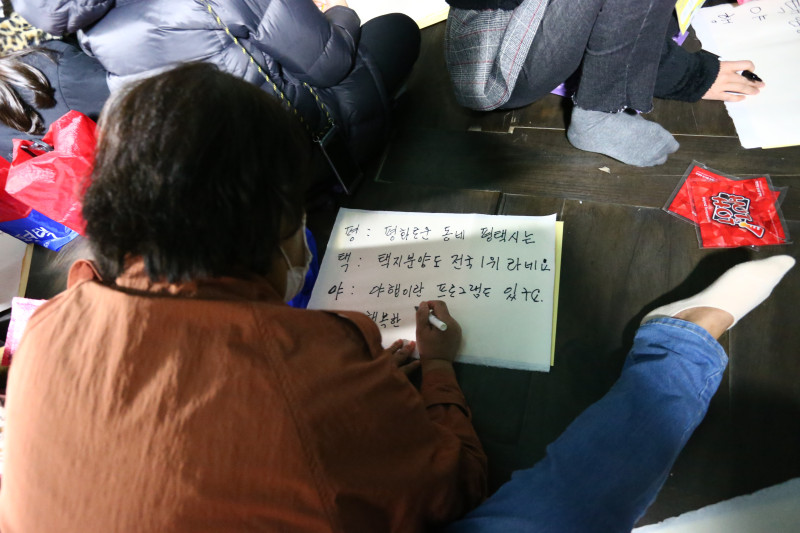 평 : 평화로운 동네 평택시는
택 : 택지분양도 전국 1위 라네요
야 : 야행이란 프로그램도 있다.
행복한